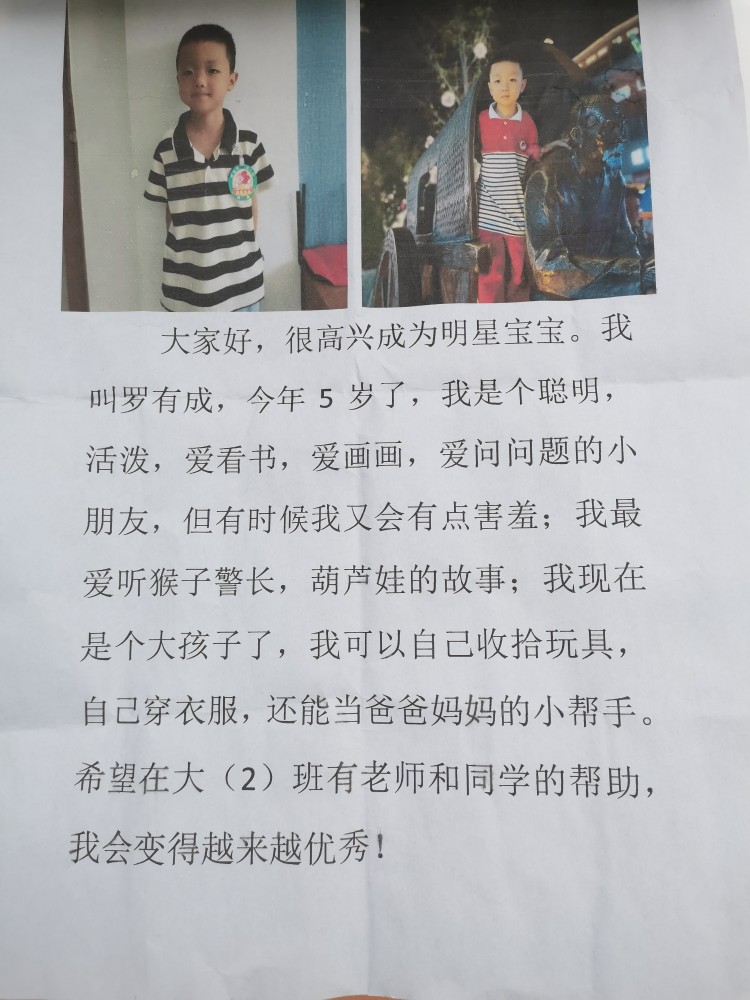 大家好，很高兴成为明星宝宝。我
叫罗有成，今年 5 岁了，我是个聪明，
活泼，爱看书，爱画画，爱问问题的小
朋友，但有时候我又会有点害羞；我最
爱听猴子警长，葫芦娃的故事；我现在
是个大孩子了，我可以自己收拾玩具，
自己穿衣服，还能当爸爸妈妈的小帮手。
希望在大（2）班有老师和同学的帮助，
我会变得越来越优秀！